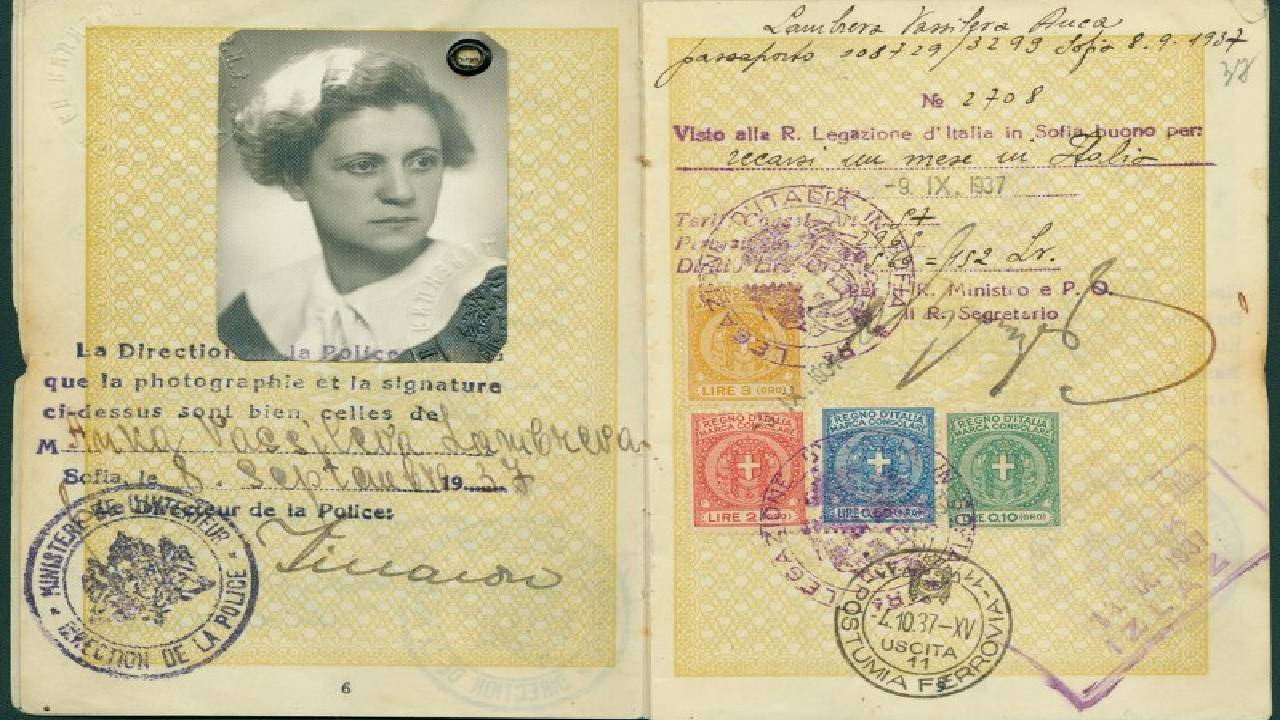 La Direction la Police
que la photographie et la signature
ci-dessus sont bien celles de
M Anka Vassileva Lambreva
Sofia, le 8. Septembre 1937
Le Directeur de la Police:
MINISTÈRE DE L'INTERIEUR
DIRECTION DE LA POLICE
6
Lambreva Vassileva Anca
passaporto 108729/3293 Sofia 8.9.1937
38
№ 2708
Visto alla R. Legazione d'Italia in Sofia buono per:
recarsi un mese in Italia
-9. IX. 1937
= 152 Lr.
Per il R. Ministro e P. O.
Il R. Segretario
LEGAZIONE D'ITALIA IN SOFIA
LIRE 3 (ORO)
REGNO D'ITALIA REGNO D'ITALIA REGNO D'ITALIA
MARCA CONSOLARE MARCA CONSOLARE MARCA CONSOLARE
LIRE 2 (ORO) LIRE (ORO) LIRE 0.10 (ORO)
LEGAZIONE
POSTUMIA FERROVIA
-4.10.37-XV
USCITA
11
IZLAZ